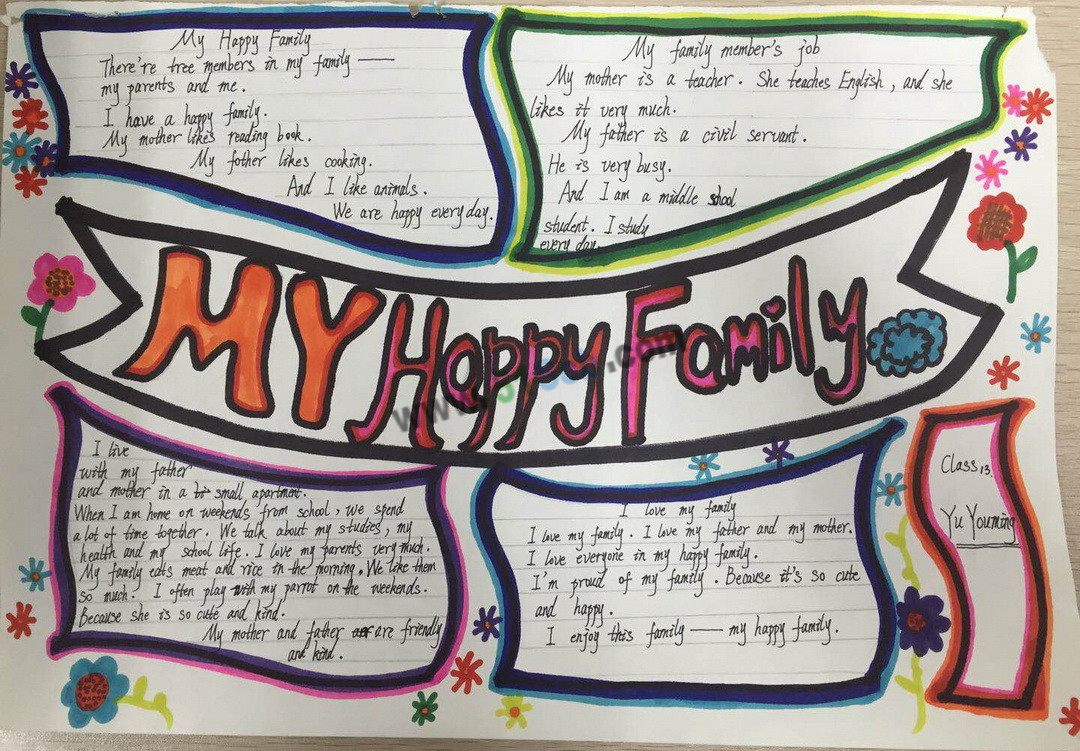 My Happy Family
There're tree members in my family —
my parents and me.
I have a happy family.
My mother likes reading book.
My fother likes cooking.
And I like animals.
We are happy every day.
My family member's job
My mother is a teacher. She teaches English, and she
likes it very much.
My father is a civil servant.
He is very busy.
And I am a middle school
student. I study
every day
MY Happy Family
I live
with my father
and mother in a small apartment.
When I am home on weekends from school, we spend
a lot of time together. We talk about my studies, my
health and my school life. I love my parents very much.
My family eats meat and rice in the morning. We like them
so much. I often play with my parrot on the weekends.
Because she is so cute and kind.
My mother and father are friendly
and kind.
I love my family
I love my family. I love my father and my mother.
I love everyone in my happy family.
I'm proud of my family. Because it's so cute
and happy.
I enjoy this family — my happy family.
Class 13
Yu Youming